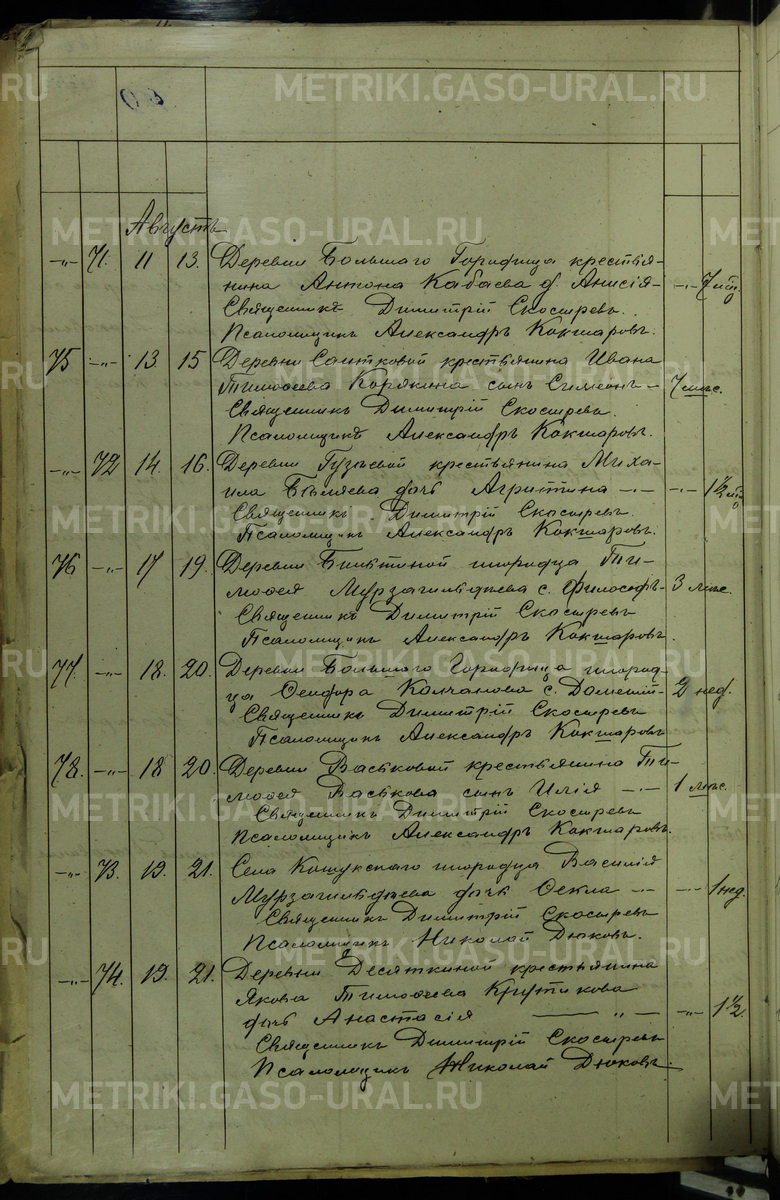 METRIKI.GASO-URAL.RU
60
Августъ
-„- 71. 11 13. Деревни Большаго Городища крестья-
нина Антона Кабаева д. Анисія - -„- 7 лѣт.
Священникъ Димитрій Скосыревъ.
Псаломщикъ Александръ Кокшаровъ.
75 -„- 13. 15 Деревни Саитковой крестьянина Ивана
Тимофеева Корякина сынъ Симеонъ - 7 мѣс.
Священникъ Димитрій Скосыревъ.
Псаломщикъ Александръ Кокшаровъ.
-„- 72 14. 16. Деревни Гузѣевой крестьянина Миха-
ила Бѣляева дочь Агриппина -„- -„- 1½
Священникъ Димитрій Скосыревъ.
Псаломщикъ Александръ Кокшаровъ.
76 -„- 17 19. Деревни инородца Ти-
мофея Мурзагильдѣева с. Философъ- 3 мѣс.
Священникъ Димитрій Скосыревъ
Псаломщикъ Александръ Кокшаровъ.
77. -„- 18. 20. Деревни Большаго Городища инород-
ца Феодора Колчанова с. Дометій- 2 нед.
Священникъ Димитрій Скосыревъ
Псаломщикъ Александръ Кокшаровъ
78. -„- 18 20. Деревни Васьковой крестьянина Ти-
мофея Васькова сынъ Илія -„- 1 мѣс.
Священникъ Димитрій Скосыревъ
Псаломщикъ Александръ Кокшаровъ.
-„- 73. 19. 21. Села Кошукскаго инородца Василія
Мурзагильдѣева дочь Фекла -„- -„- 1 нед.
Священникъ Димитрій Скосыревъ
Псаломщикъ Николай Дюковъ.
-„- 74. 19. 21. Деревни Десяткиной крестьянина
Якова Тимофеева Крутикова
дочь Анастасія -„- -„- 1½.
Священникъ Димитрій Скосыревъ
Псаломщикъ Николай Дюковъ.